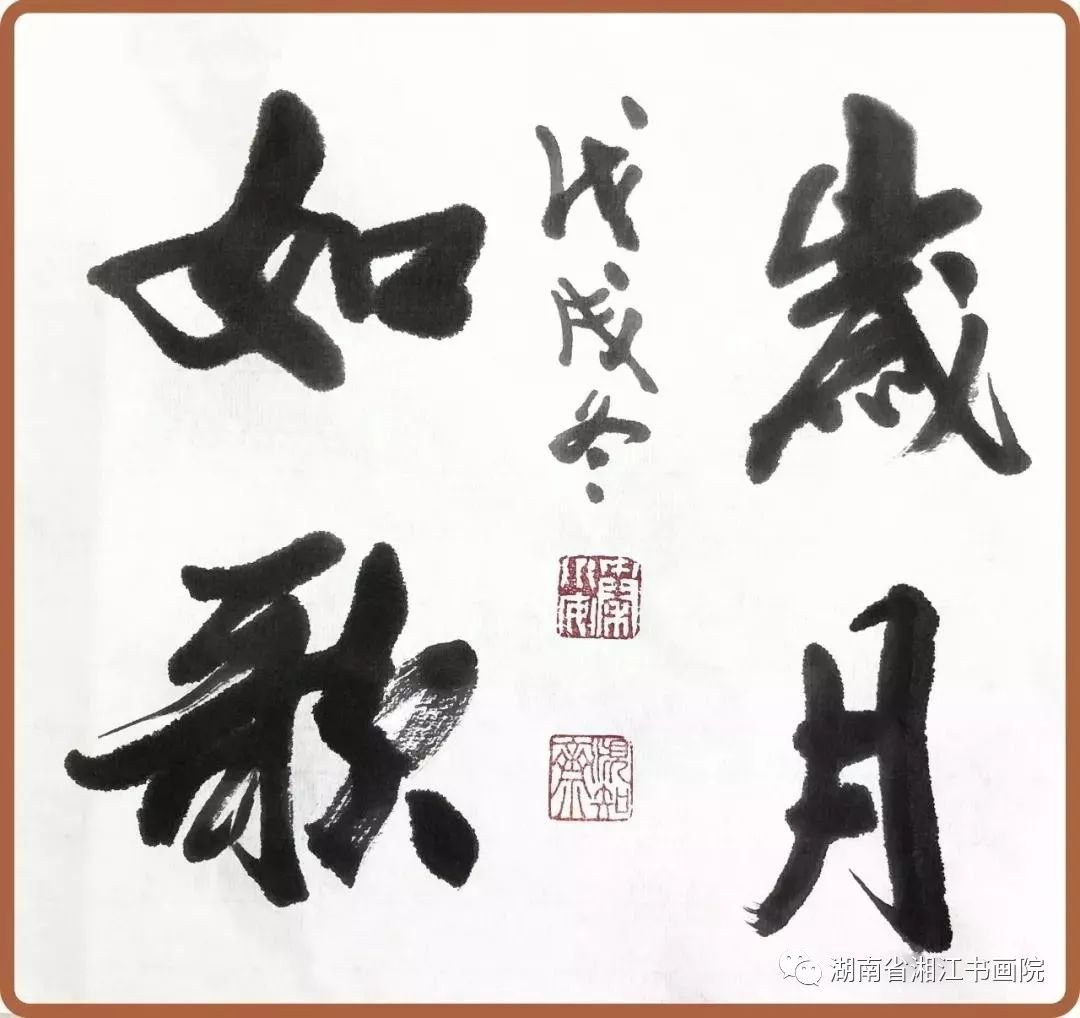 歲月
戊戌冬
如歌
湖南省湘江书画院